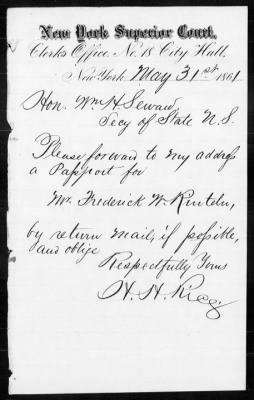 New York Superior Court,
Clerks Office, No. 18 City Hall.
New York May 31st 1861.
Hon. Wm H. Seward
Secy of State U.S.
Please forward to my address
a Passport for
Mr. Frederick W.
by return mail, if possible,
and oblige
Respectfully Yours
H. H.